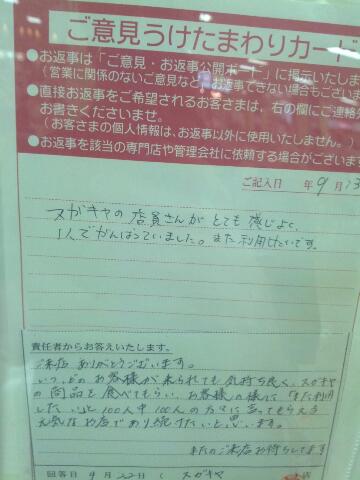 ご意見うけたまわりカード
●お返事は「ご意見・お返事公開ボード」に掲示いたしま
(営業に関係のないご意見など、お返事できない場合もございま
●直接お返事をご希望されるお客さまは、右の欄にご連絡先
お書きくださいませ。
(お客さまの個人情報は、お返事以外に使用いたしません。)
●お返事を該当の専門店や管理会社に依頼する場合がございます
ご記入日 年 9 月 13
スガキヤの店員さんがとても感じよく、
1人でがんばっていました。また利用したいです。
責任者からお答えいたします。
ご来店ありがとうございます。
いつ、どのお客様が来られても気持ち良く、スガキヤ
の商品を食べてもらい、お客様の様に「また利用
したい」と100人中100人の方々に言ってもらえる
元気なお店であり続けたいと思います。
またのご来店お待ちしてます
回答日 9 月 22日 ( スガキヤ 店